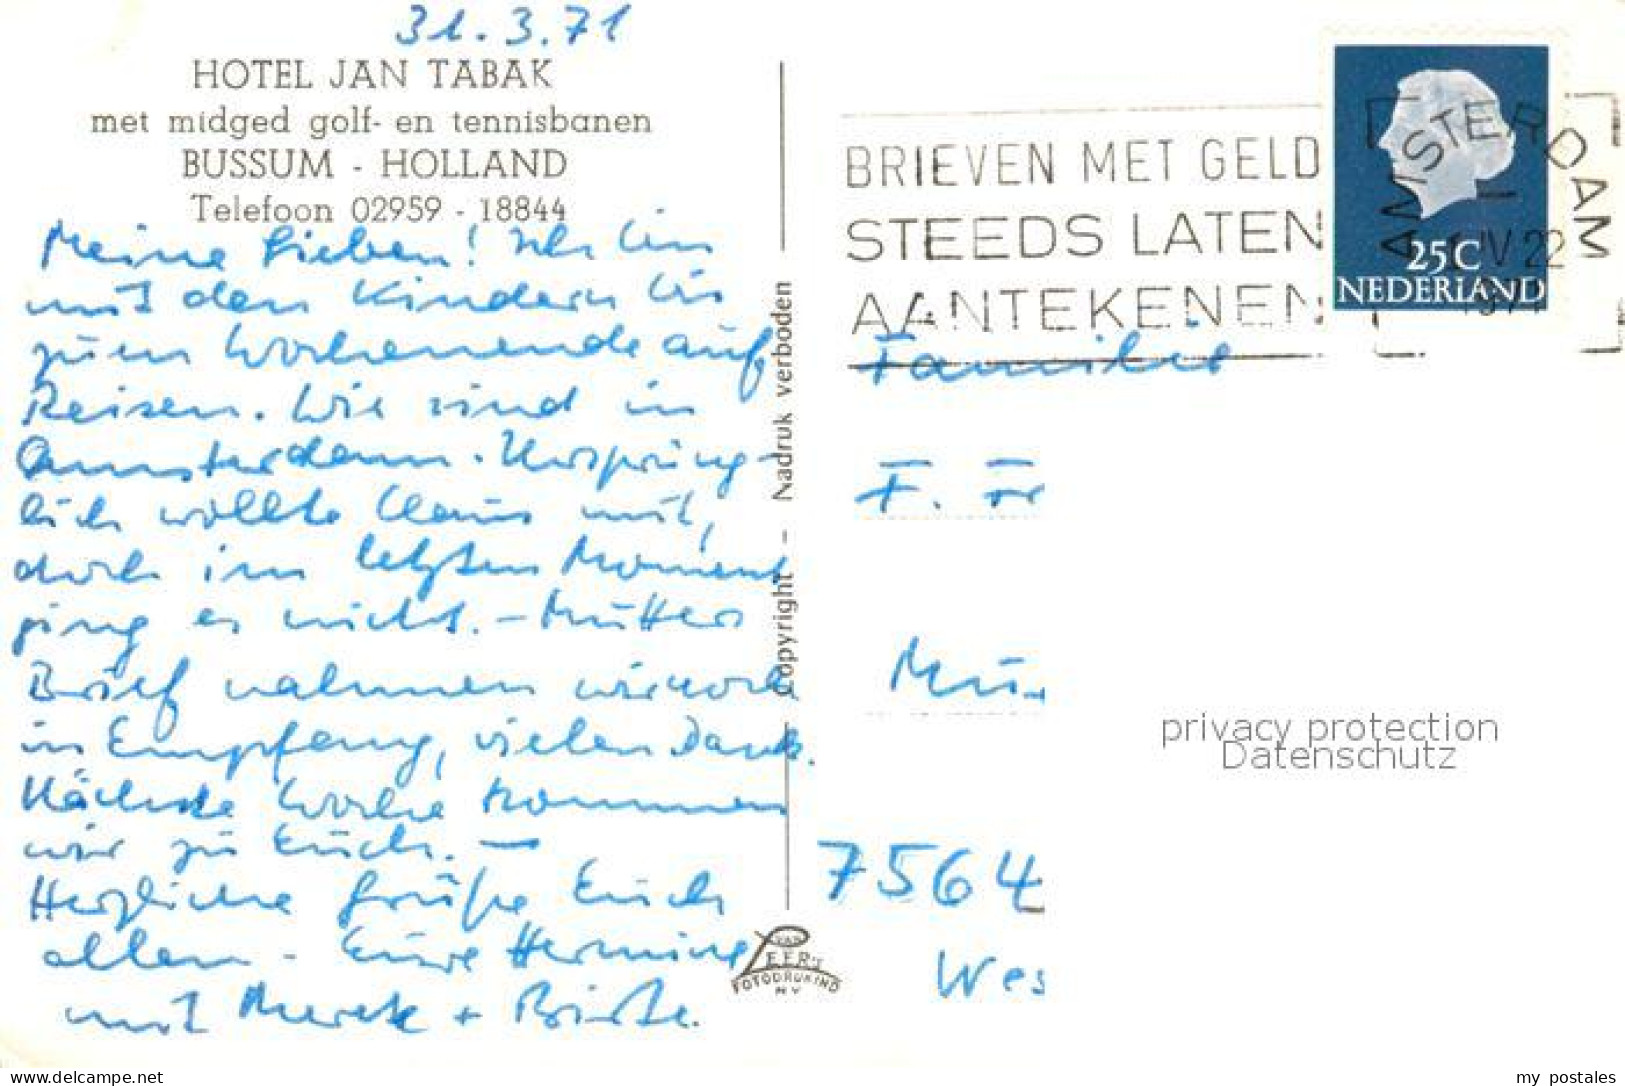 31.3.71
HOTEL JAN TABAK
met midged golf- en tennisbanen
BUSSUM - HOLLAND
Telefoon 02959 - 18844
Meine Lieben! Ich bin
mit den Kindern bis
zum Wochenende auf
Reisen. Wir sind in
Amsterdam. Ursprüng-
lich wollte Claus mit,
doch im letzten Moment
ging es nicht. - Mutters
Brief nahmen wir noch
in Empfang, vielen Dank.
Nächste Woche kommen
wir zu Euch. -
Herzliche Grüße Euch
allen - Eure Hermine
mit + Birte.
Copyright - Nadruk verboden
VAN
LEER'S
FOTODRUKIND
NV
BRIEVEN MET GELD
STEEDS LATEN
AANTEKENEN
AMSTERDAM
IV 22
1971
25C
NEDERLAND
Familie
F. Fr
Mü
7564
Wes
privacy protection
Datenschutz
www.delcampe.net
my_postales